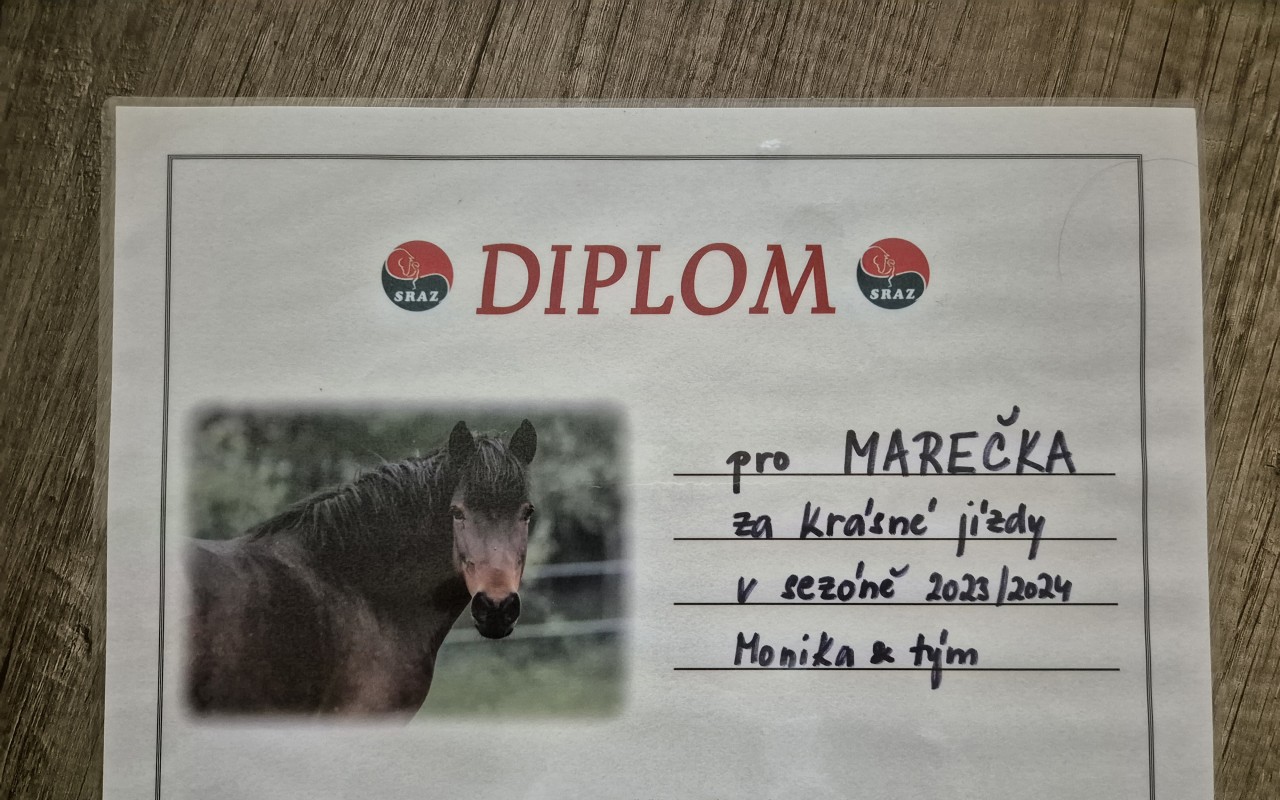 SRAZ DIPLOM SRAZ
pro MAREČKA
za krásné jízdy
v sezóně 2023/2024
Monika & tým